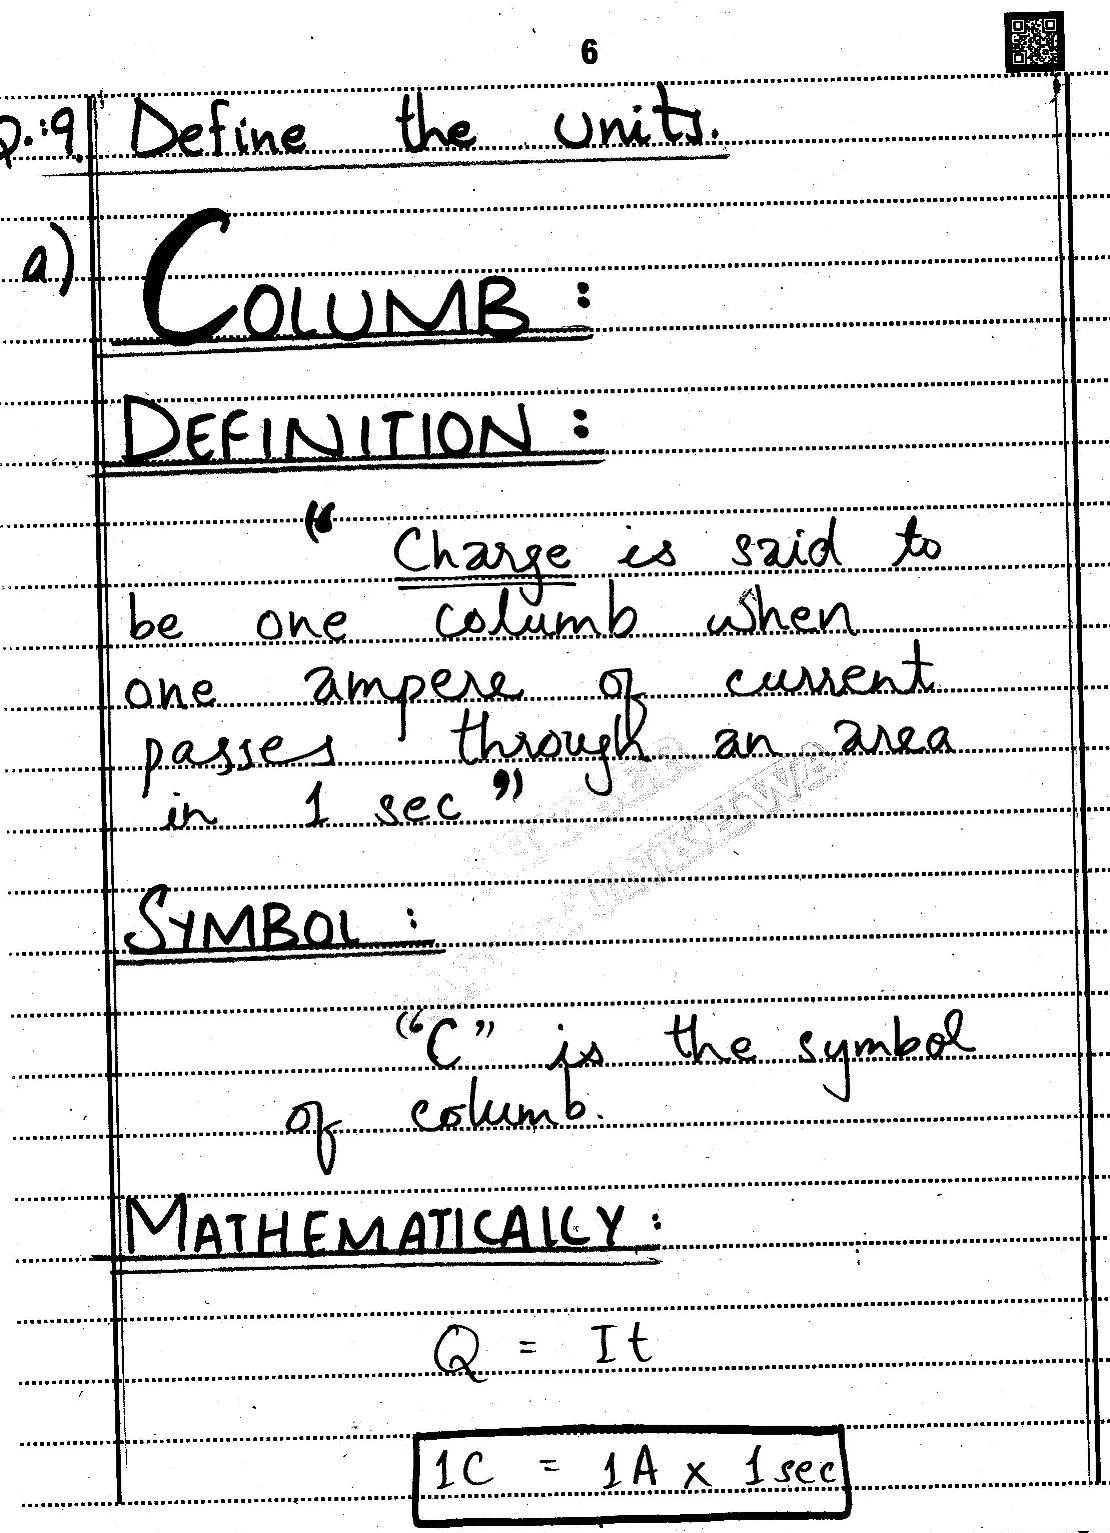 6
Q.:9 Define the units.
a) COLUMB :
DEFINITION :
“ Charge is said to
be one columb when
one ampere of current
passes through an area
in 1 sec ”
SYMBOL :
“C” is the symbol
of columb.
MATHEMATICALLY :
Q = It
1C = 1A x 1 sec